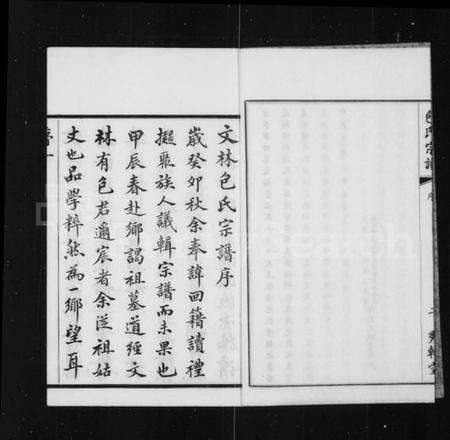 包氏宗譜
序
文林包氏宗譜序
歲癸卯秋余奉諱回籍讀禮
擬聚族人議輯宗譜而未果也
甲辰春赴鄉謁祖墓道經文
林有包君遹宸者余從祖姑
丈也品學粹然為一鄉望耳